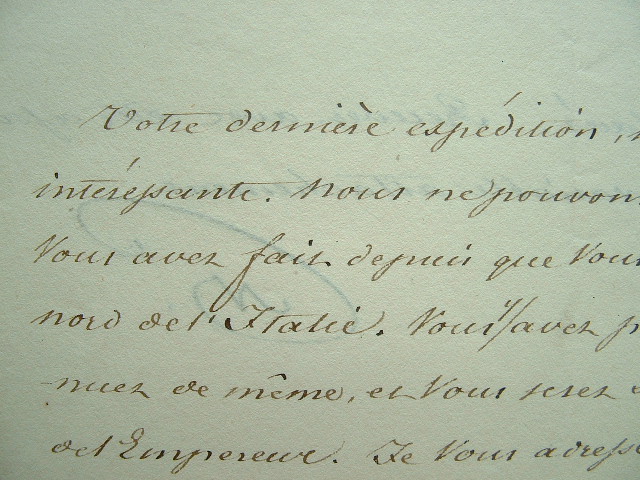 Votre dernière expédition,
intéressante. Nous ne pouvons
Vous avez fait depuis que Vous
nord de l'Italie. Vous y avez
nuez de même, et Vous serez
de l'Empereur. Je Vous adresse